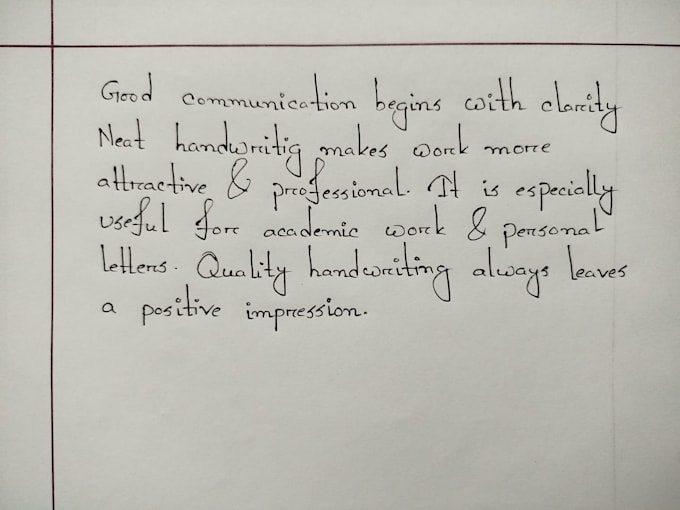 Good communication begins with clarity
Neat handwritig makes work more
attractive & professional. It is especially
useful for academic work & personal
letters. Quality handwriting always leaves
a positive impression.